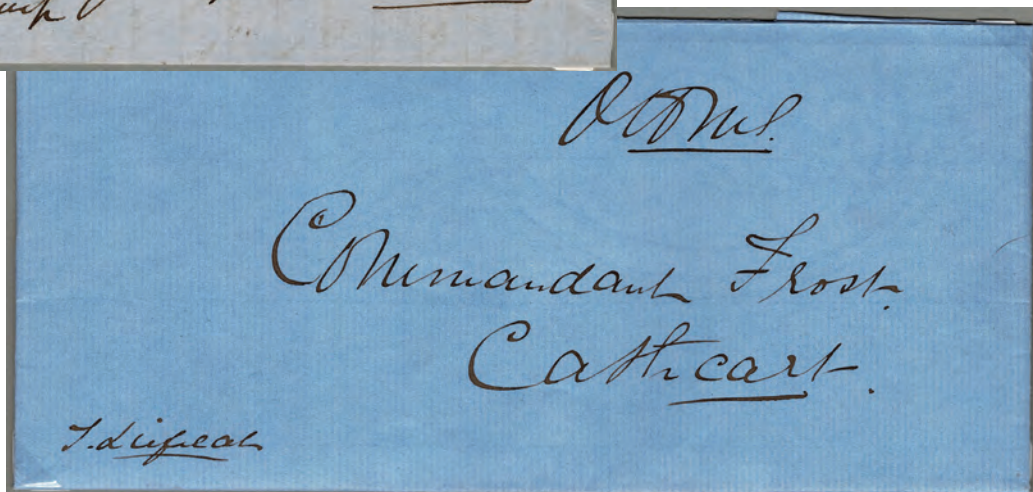 OHMS.
Commandant Frost.
Cathcart.